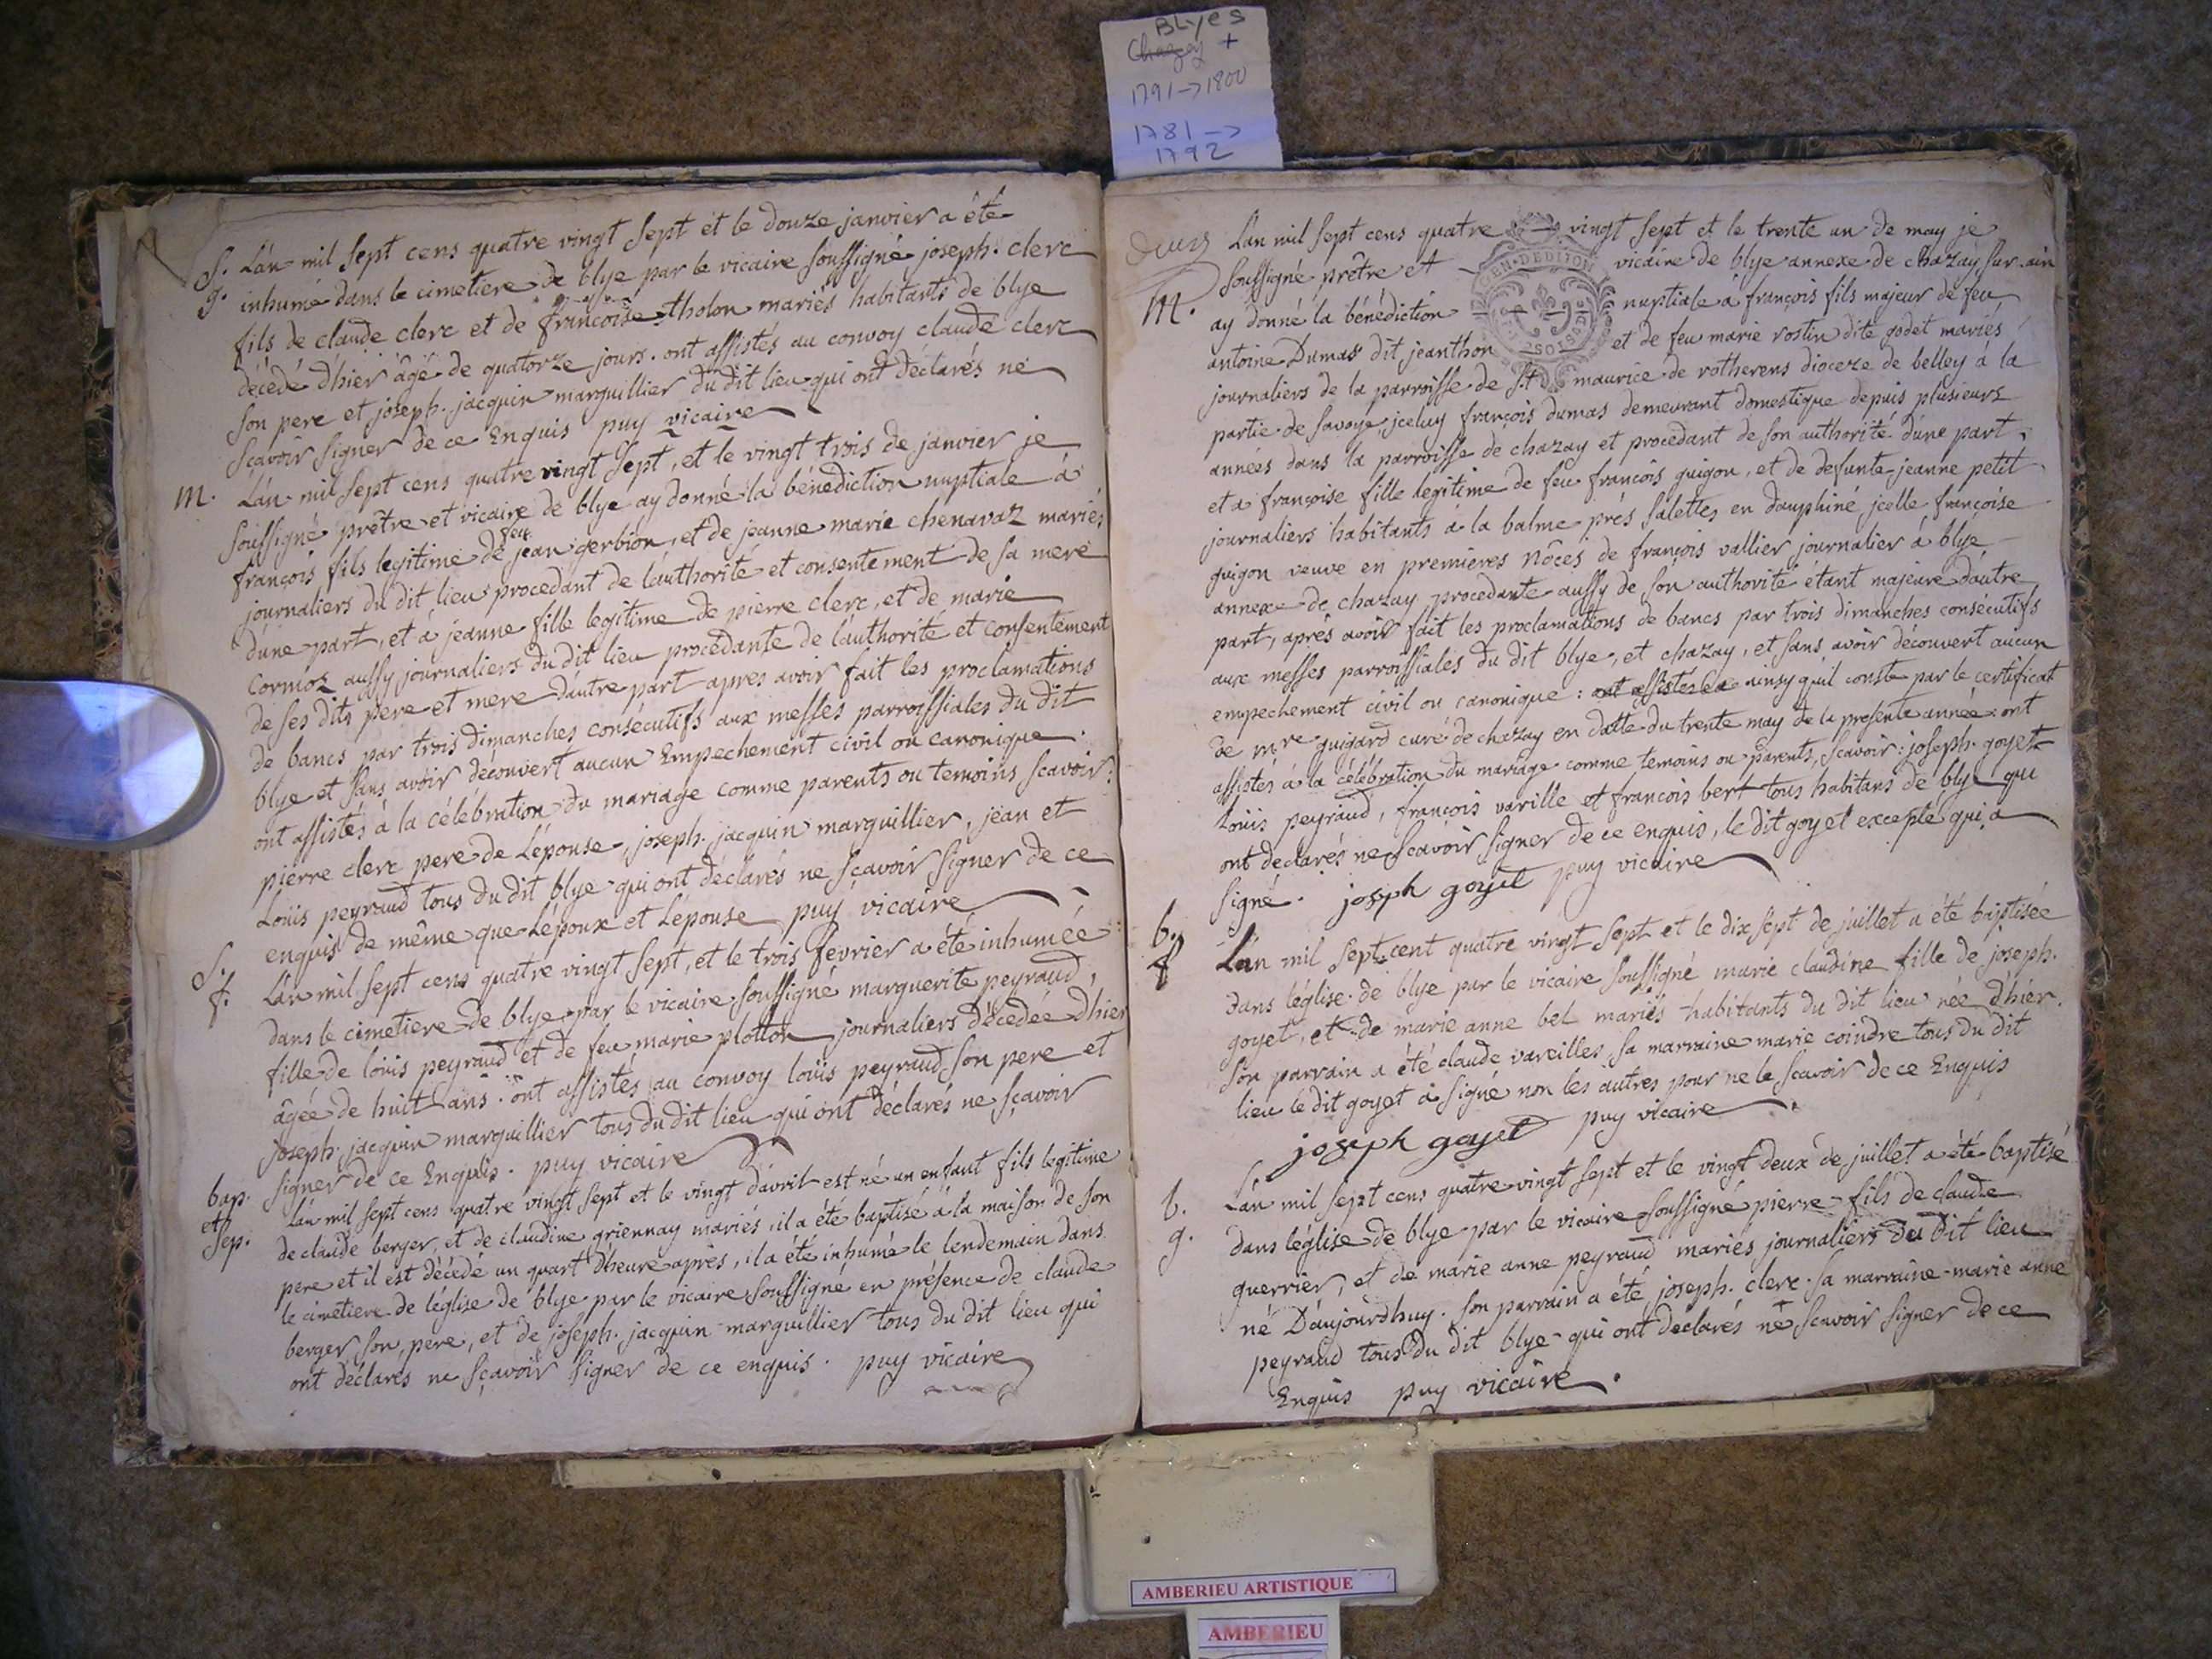 BLyes
Chazey +
1791->1800
1781->
1792
S. Lán mil sept cens quatre vingt sept et le douze janvier a été
g. inhumé dans le cimetiere de blye par le vicaire soussigné joseph. clerc
fils de claude clerc et de françoise tholon mariés habitants de blye
décédé d'hier âgé de quatorze jours. ont assistés au convoy claude clerc
son pere et joseph. jacquin marguillier du dit lieu qui ont déclarés ne
sçavoir signer de ce Enquis puy vicaire
m. Lán mil sept cens quatre vingt sept, et le vingt trois de janvier je
soussigné prêtre et vicaire de blye ay donné la bénédiction nuptiale à
françois fils legitime de feu jean gerbion, et de jeanne marie chenavaz mariés
journaliers du dit lieu procedant de l'authorité et consentement de sa mere
d'une part, et à jeanne fille legitime de pierre clerc, et de marie
cormoz aussy journaliers du dit lieu procedante de l'authorité et consentement
de ses dits pere et mere d'autre part apres avoir fait les proclamations
de bancs par trois dimanches consécutifs aux messes parroissiales du dit
blye et sans avoir découvert aucun Empechement civil ou canonique.
ont assistés à la célébration du mariage comme parents ou temoins scavoir:
pierre clerc pere de Lépouse, joseph. jacquin marguillier, jean et
Loüis peyraud tous du dit blye qui ont déclarés ne sçavoir signer de ce
enquis de même que Lépoux et Lépouse puy vicaire
S. Lán mil sept cens quatre vingt sept, et le trois fevrier a été inhumée
f. dans le cimetiere de blye par le vicaire soussigné marguerite peyraud,
fille de loüis peyraud et de feu marie plotton journaliers décedée d'hier
âgée de huit ans. ont assistés au convoy loüis peyraud son pere et
joseph. jacquin marguillier tous du dit lieu qui ont déclarés ne sçavoir
signer de ce Enquis. puy vicaire
bap. lán mil sept cens quatre vingt sept et le vingt d'avril est né un enfant fils legitime
et sep. de claude berger, et de claudine griennay mariés, il a été baptisé à la maison de son
pere et il est décédé un quart d'heure après, il a été inhumé le lendemain dans
le cimetiere de léglise de blye par le vicaire soussigné en présence de claude
berger son pere, et de joseph. jacquin marguillier tous du dit lieu qui
ont déclarés ne sçavoir signer de ce enquis. puy vicaire
Lán mil sept cens quatre vingt sept et le trente un de may je
soussigné prêtre et vicaire de blye annexe de chazay sur ain
m. ay donné la bénédiction nuptiale à françois fils majeur de feu
antoine Dumas dit jeanthon et de feu marie rostin dite godet mariés
journaliers de la parroisse de St maurice de rotherens dioceze de belley à la
partie de savoye, jceluy françois dumas demeurant domestique depuis plusieurs
années dans la parroisse de chazay et procedant de son authorité d'une part,
et à françoise fille legitime de feu françois guigon, et de defunte jeanne petit
journaliers habitants à la balme prés salettes en dauphiné jcelle françoise
guigon veuve en premieres nôces de françois vallier journalier à blye
annexe de chazay procedante aussy de son authorité étant majeure d'autre
part, aprés avoir fait les proclamations de bancs par trois dimanches consécutifs
aux messes parroissiales du dit blye, et chazay, et sans avoir découvert aucun
empechement civil ou canonique: ainsy qu'il conste par le certificat
de mre guigard curé de chazay en datte du trente may de la presente année. ont
assistés à la célébration du mariage comme temoins ou parents, scavoir: joseph. goyet
Loüis peyraud, françois varille et françois bert tous habitans de blye qui
ont declarés ne sçavoir signer de ce enquis, le dit goyet excepté qui a
signé. joseph goyet puy vicaire
b. Lán mil sept cent quatre vingt sept et le dix sept de juillet a été baptisée
f dans léglise de blye par le vicaire soussigné marie claudine fille de joseph.
goyet, et de marie anne bel mariés habitants du dit lieu née d'hier.
son parrain a été claude vareilles sa marraine marie coindre tous du dit
lieu le dit goyet a signé non les autres pour ne le sçavoir de ce Enquis
joseph goyet puy vicaire
b. Lán mil sept cens quatre vingt sept et le vingt deux de juillet a été baptisé
g. dans léglise de blye par le vicaire soussigné pierre fils de claude
guerrier, et de marie anne peyraud mariés journaliers du dit lieu
né D'aujourdhuy. son parrain a été joseph. clerc. sa marraine marie anne
peyraud tous du dit blye qui ont declarés ne scavoir signer de ce
Enquis puy vicaire.
AMBERIEU ARTISTIQUE
AMBERIEU